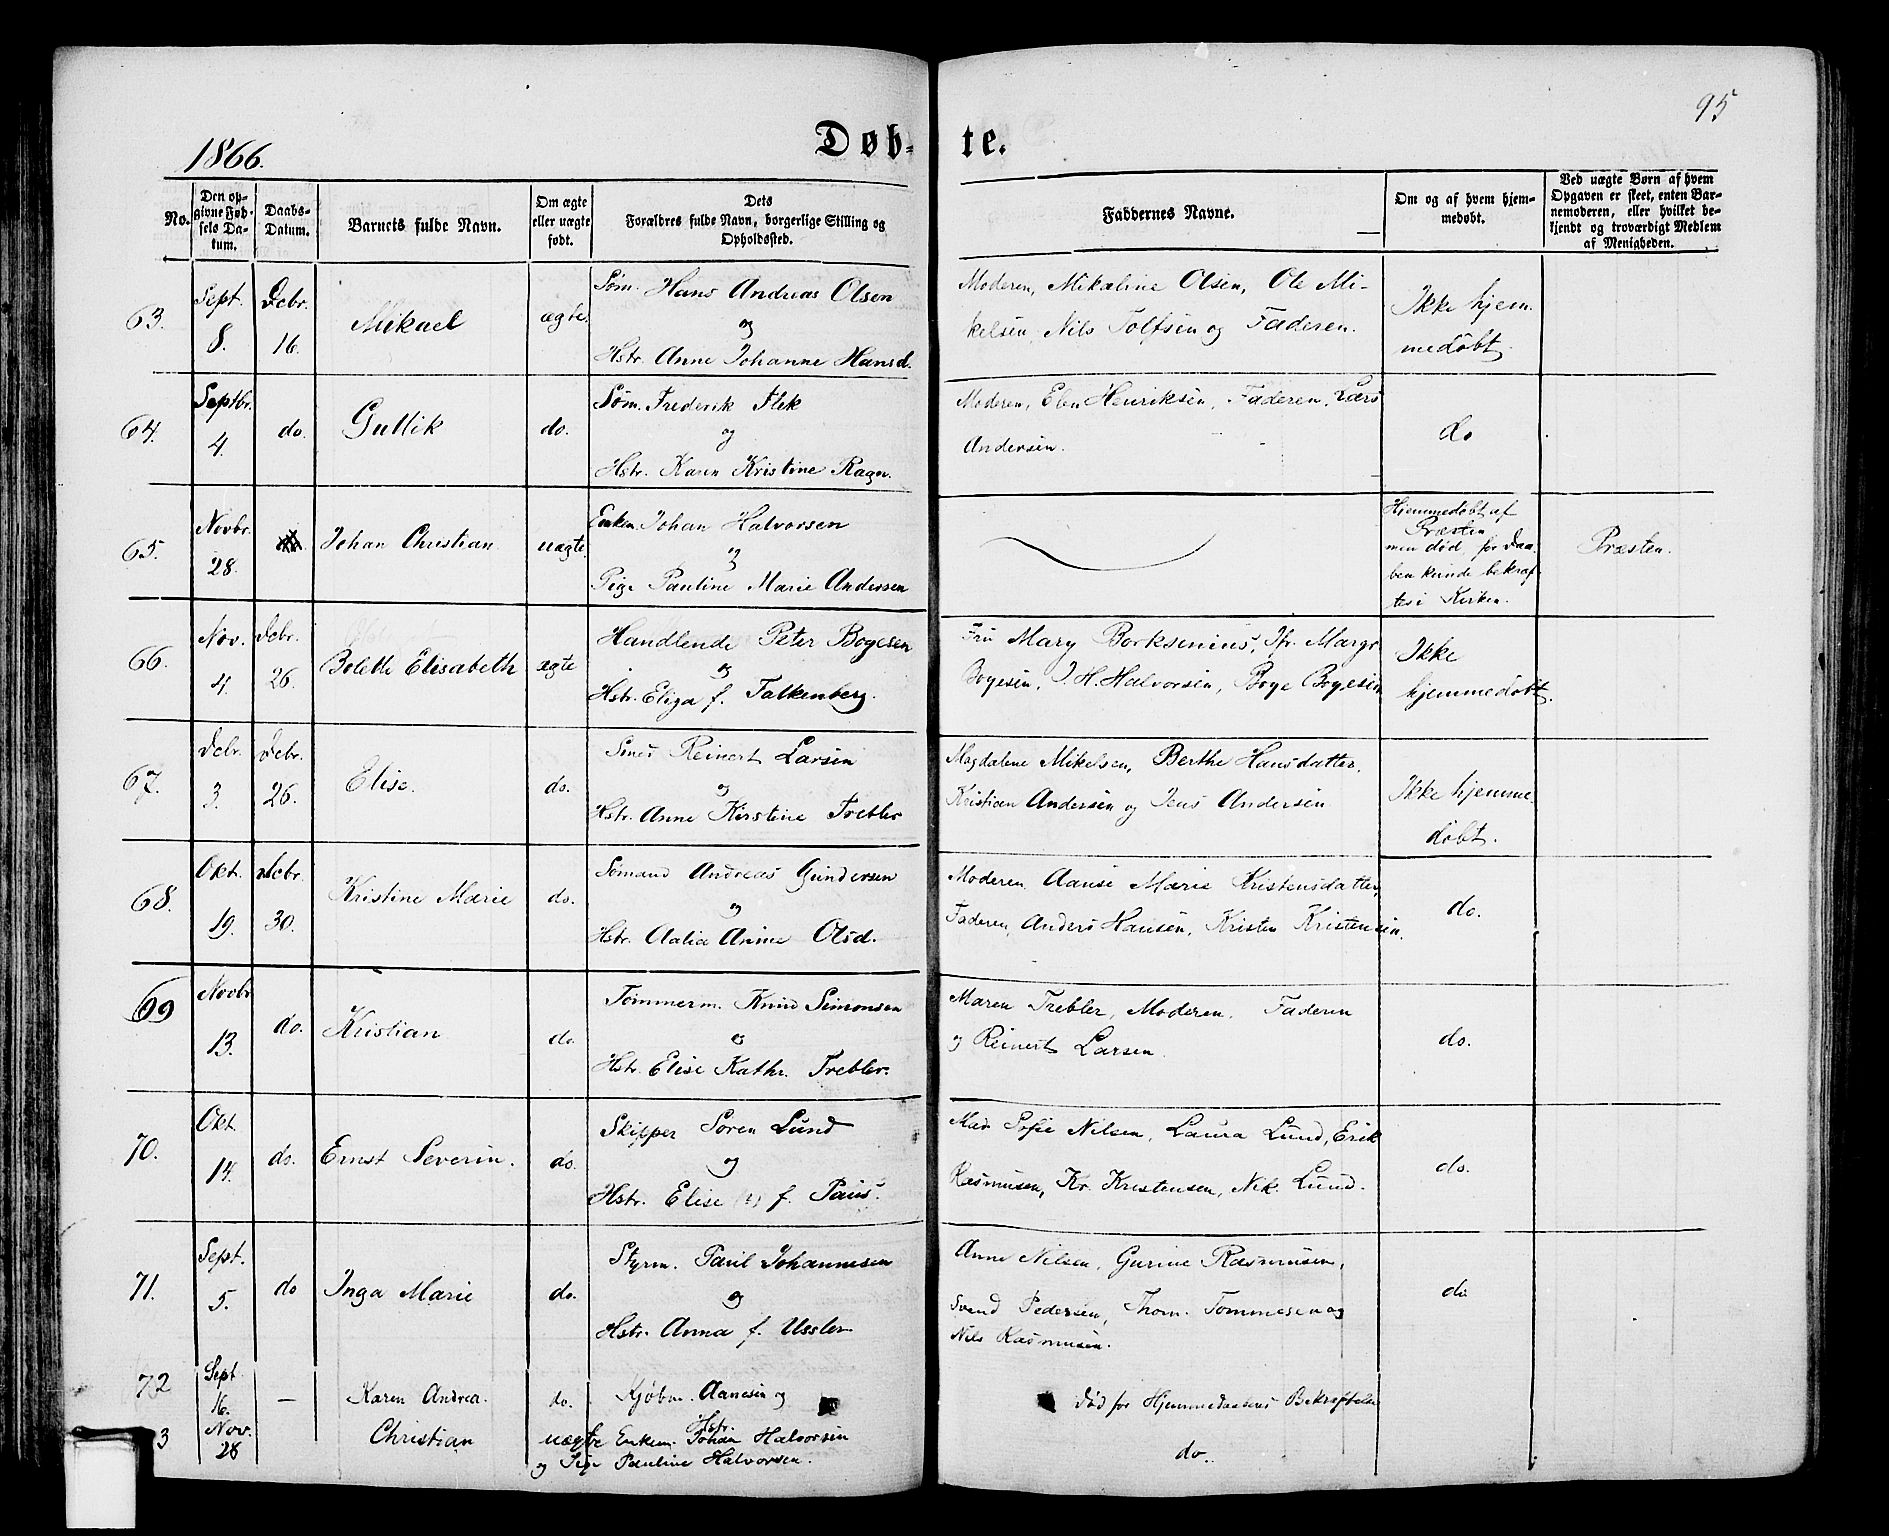 95
1866.
Døb- te.
No.
Den op-
givne Fød-
sels Da-
tum.
Daabs-
Datum.
Barnets fulde Navn.
Om ægte
eller uægte
født.
Dets
Forældres fulde Navn, borgerlige Stilling og
Opholdssted.
Faddernes Navne.
Om og af hvem hjem-
medøbt.
Ved uægte Børn af hvem
Opgaven er skeet, enten Bar-
nemoderen, eller hvilket be-
kjendt og troværdigt Medlem
af Menigheden.
63.
Sept.
8.
Dcbr.
16.
Mikael
ægte.
Søm. Hans Andreas Olsen
og
Hstr. Anne Johanne Hansd.
Moderen, Mikaline Olsen, Ole Mi-
kelsen, Nils Tolfsen og Faderen.
Ikke hjem-
medøbt.
64.
Septbr.
4.
do.
Gullik
do.
Søm. Frederik Flek
og
Hstr. Karen Kristine Ragn.
Moderen, Elen Henriksen, Faderen, Lars
Andersen.
do
65.
Novbr.
28.
Johan Christian.
uægte.
Enkem. Johan Halvorsen
og
Pige Pauline Marie Andersen
Hjemmedøbt af
Præsten
men død før Daa-
ben kunde bekræf-
tes i Kirken.
Præsten.
66.
Nov.
4.
Dcbr.
26.
Bolette Elisabeth
ægte
Handlende Peter Bogesen
og
Hstr. Eliza f. Falkenberg.
Fru Mary Borksenius, Jfr. Margr.
Bogesen, J. H. Halvorsen, Boge Bogesen
Ikke
hjemmedøbt.
67.
Dcbr.
3.
Dcbr.
26.
Elise.
do.
Smed Reinert Larsen
og
Hstr. Anne Kirstine Trebler
Magdalene Mikelsen, Berthe Hansdatter,
Kristian Andersen og Jens Andersen
Ikke hjemme-
døbt.
68.
Okt.
19.
Dcbr.
30.
Kristine Marie
do.
Sømand Andreas Gundersen
og
Hstr. Aalia Anne Olsd.
Moderen, Aanse Marie Kristensdatter,
Faderen, Anders Hansen, Kristen Kristensen.
do.
69
Novbr
13.
do.
Kristian
do.
Tømmerm. Knud Simonsen
og
Hstr. Elise Kathr. Trebler.
Maren Trebler, Moderen, Faderen
og Reinert Larsen.
do.
70.
Okt.
14.
do.
Ernst Severin.
do.
Skipper Søren Lund
og
Hstr. Elise f. Paus.
Mad. Sofie Nilsen, Laura Lund, Erik
Rasmusen, Kr. Kristensen, Nik. Lund.
do.
71.
Sept.
5.
do
Inga Marie
do.
Styrm. Paul Johannesen
og
Hstr. Anna f. Ussler
Anne Nilsen, Gurine Rasmusen,
Svend Pedersen, Thom. Tommesen og
Nils Rasmusen.
do.
72
Sept
16.
—
Karen Andrea.
do.
Kjøbm. Aanesen og
Hstr.
Død før Hjemmedaabens Bekræftelse
3
Nov.
28
Christian
uægte
Enkem. Johan Halvorsen
og Pige Pauline Halvorsen.
do.